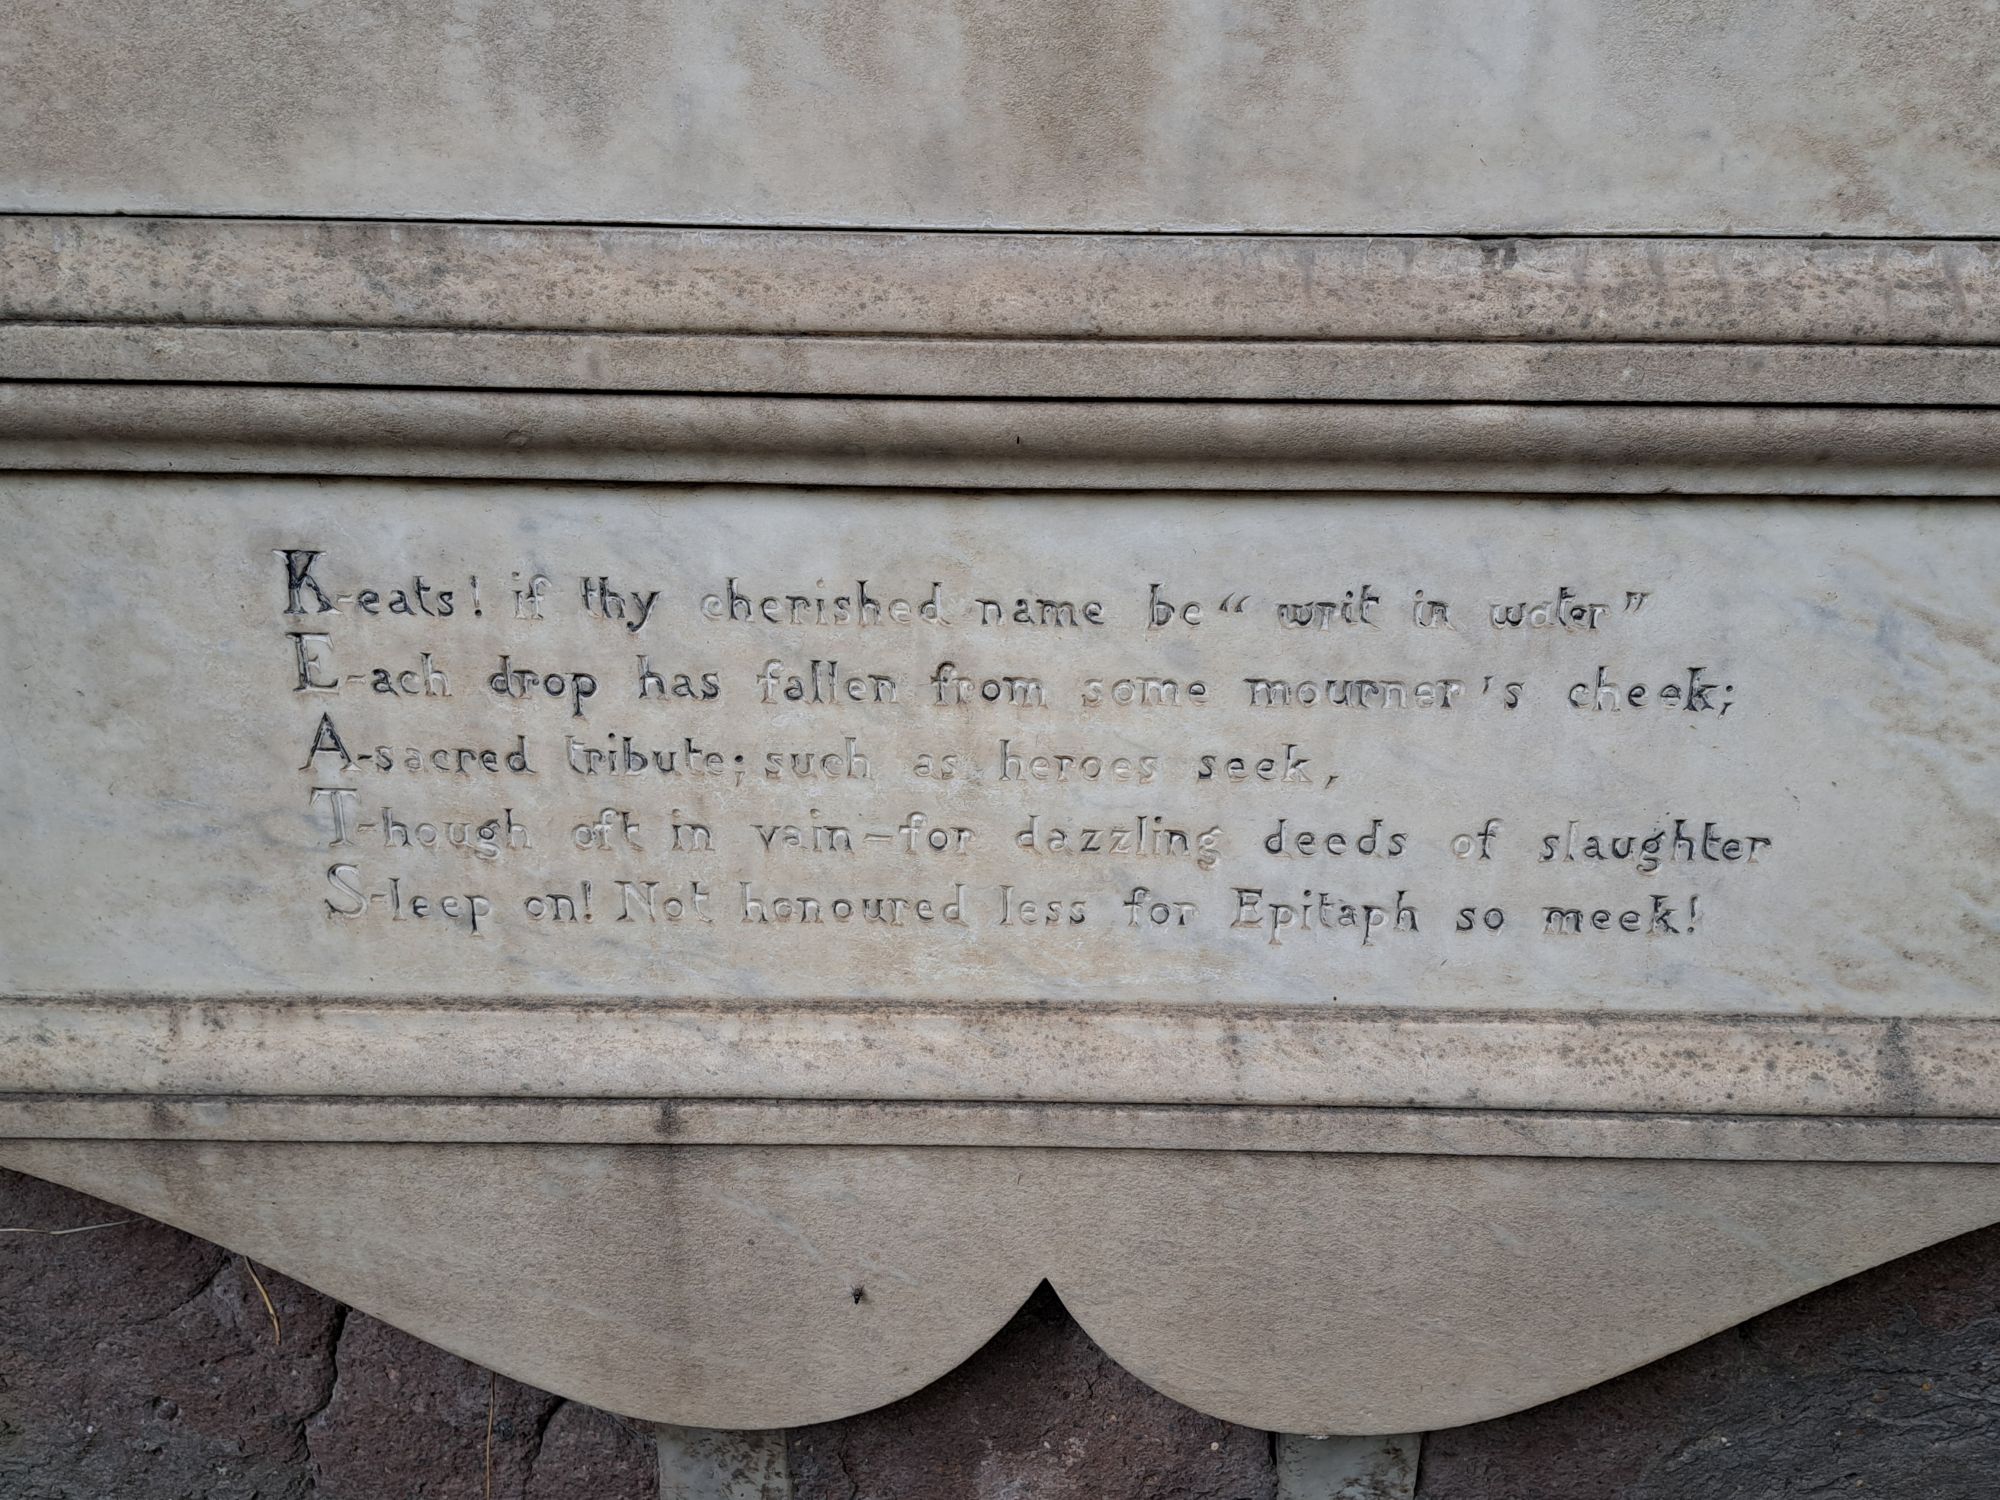 K-eats! if thy cherished name be “ writ in water”
E-ach drop has fallen from some mourner's cheek;
A-sacred tribute; such as heroes seek,
T-hough oft in vain-for dazzling deeds of slaughter
S-leep on! Not honoured less for Epitaph so meek!